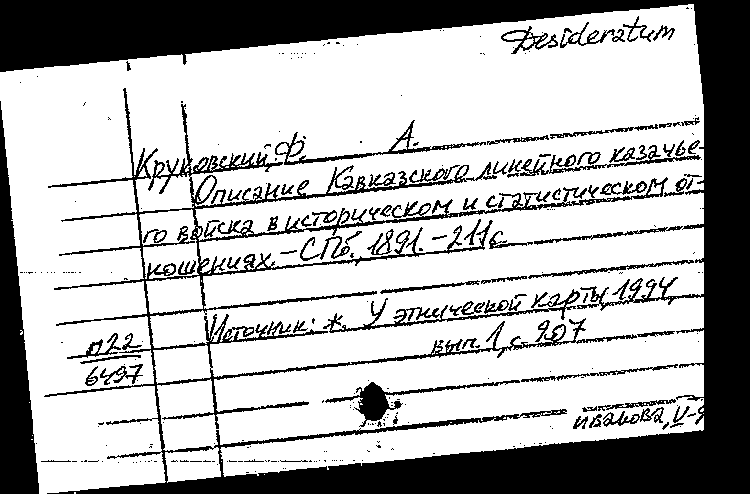 Desideratum
Круковский, Ф. А.
Описание Кавказского линейного казачье-
го войска в историческом и статистическом от-
ношениях. - СПб., 1891. - 211 с
Источник: ж. У этнической карты, 1994,
вып. 1, с. 207
п22
6497
Иванова, V-9